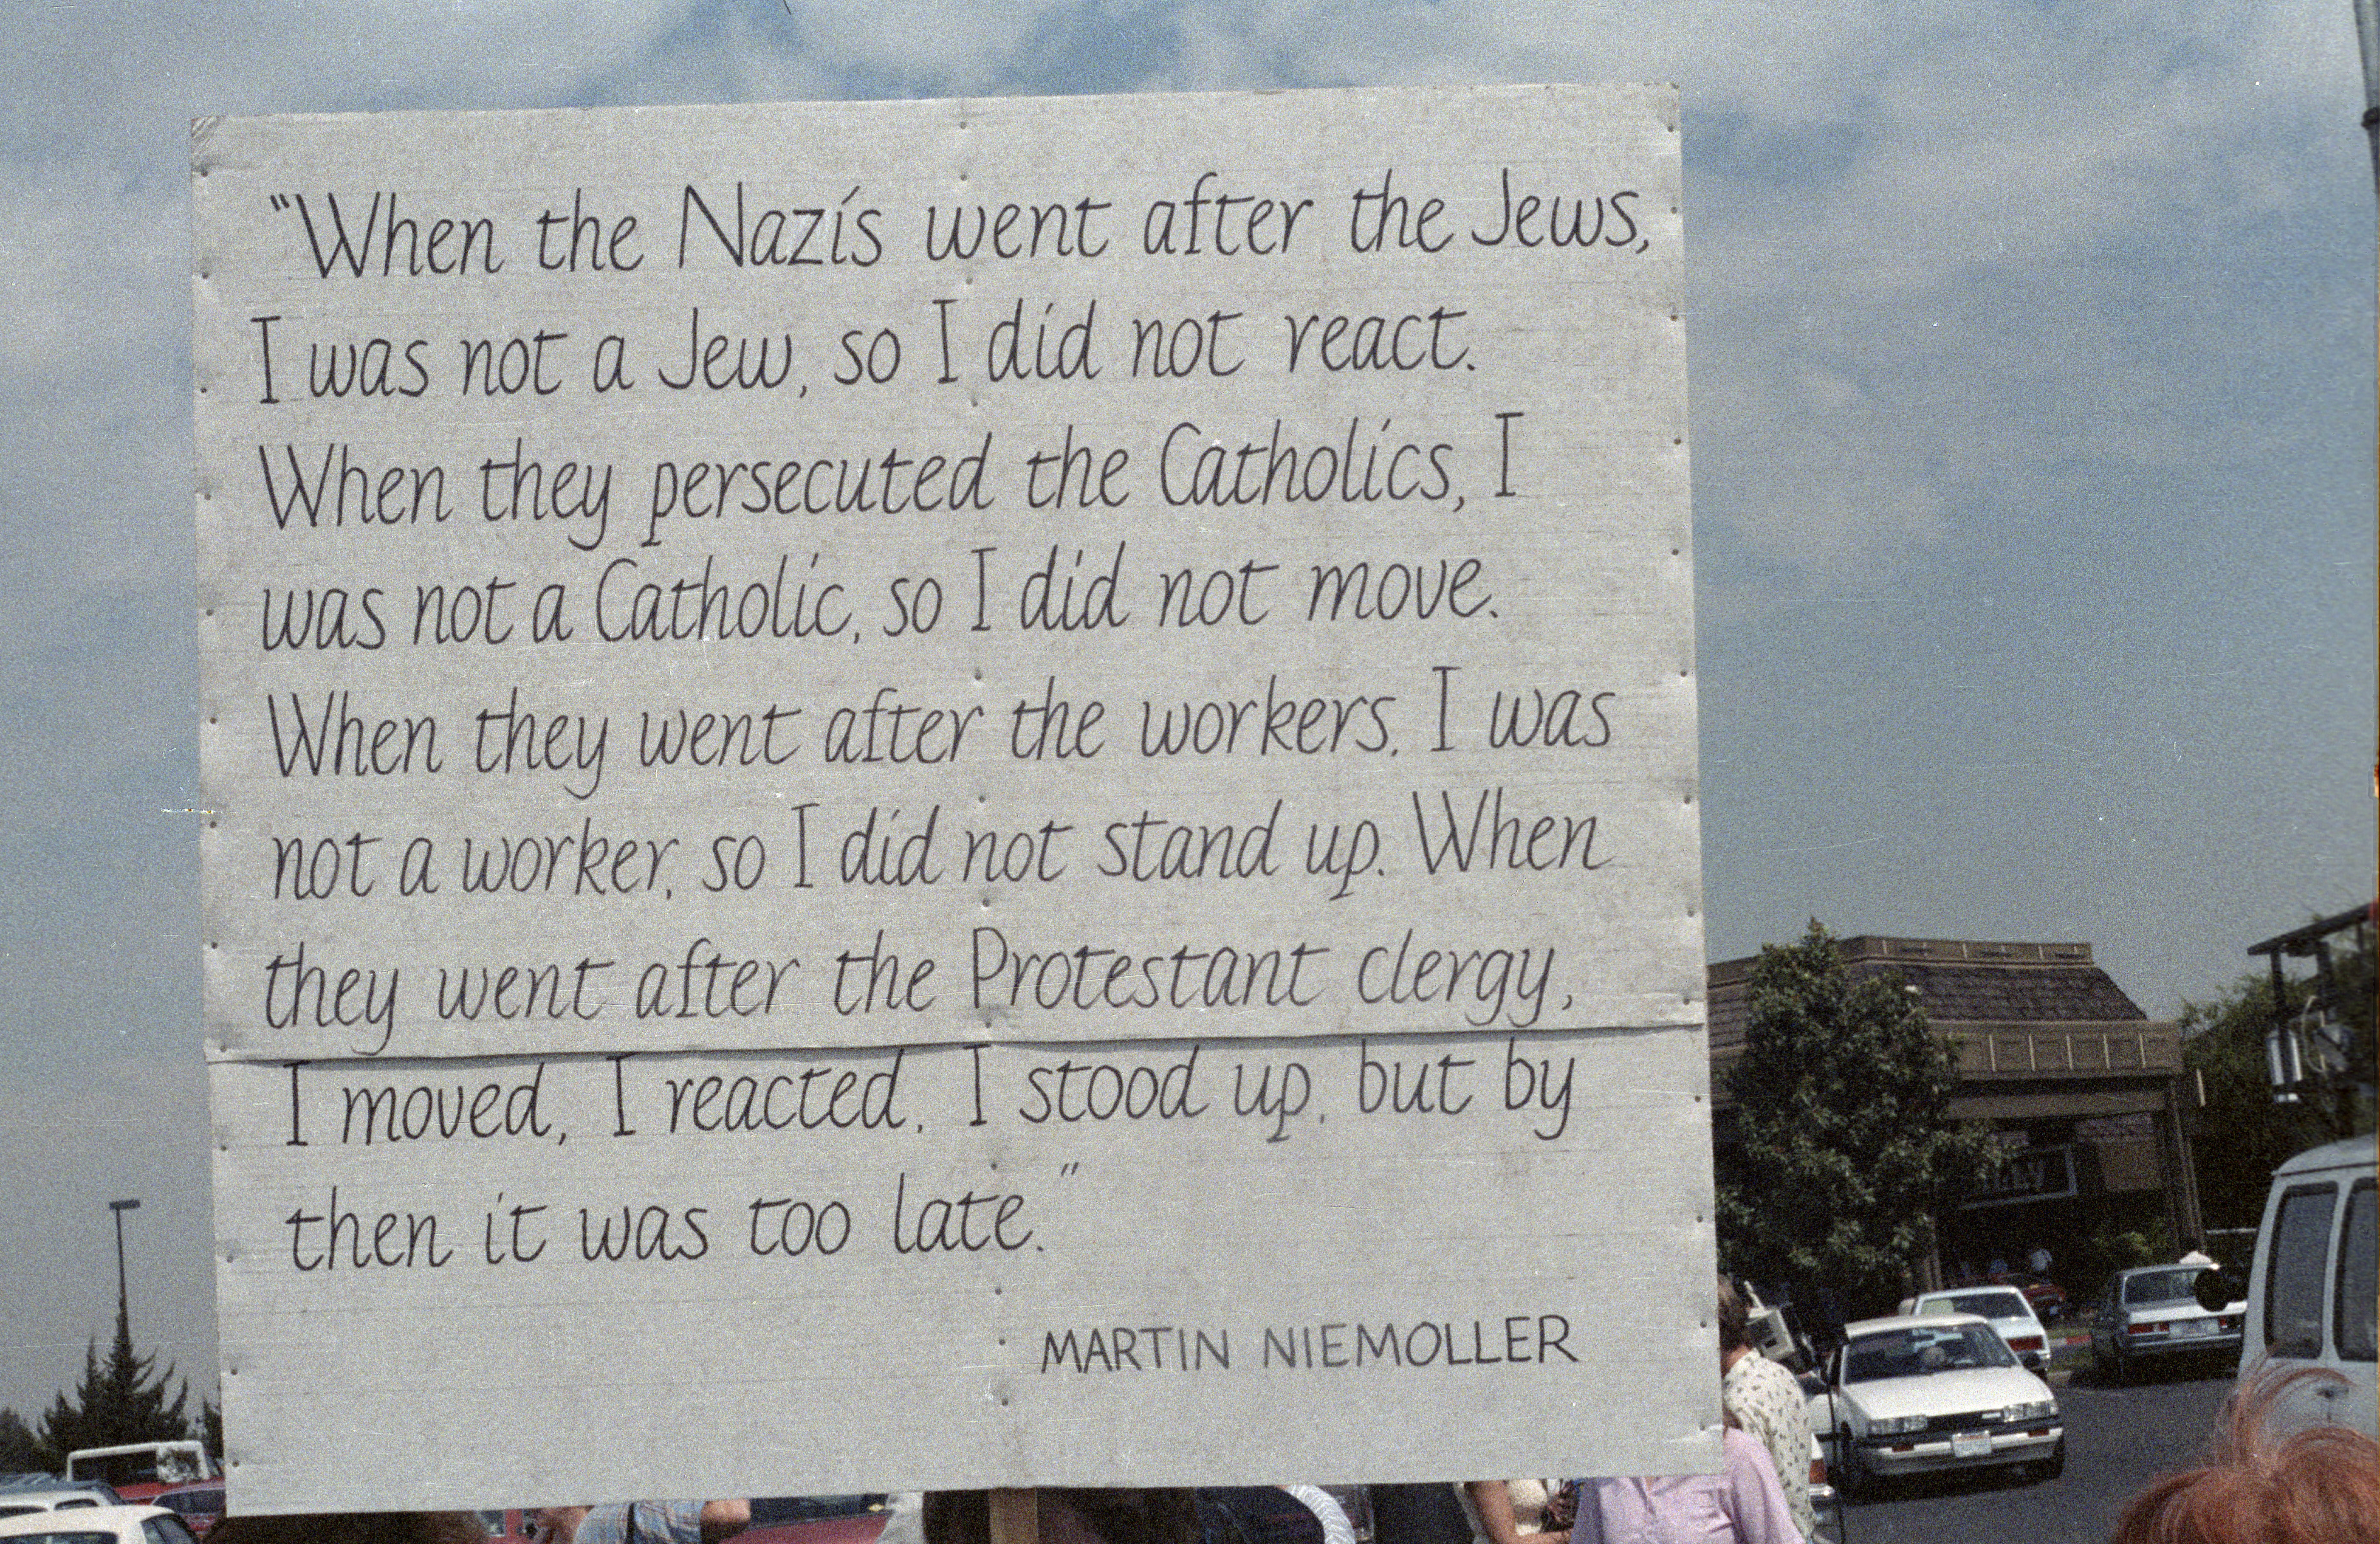 "When the Nazis went after the Jews,
I was not a Jew, so I did not react.
When they persecuted the Catholics, I
was not a Catholic, so I did not move.
When they went after the workers, I was
not a worker, so I did not stand up. When
they went after the Protestant clergy,
I moved, I reacted, I stood up, but by
then it was too late."
MARTIN NIEMOLLER